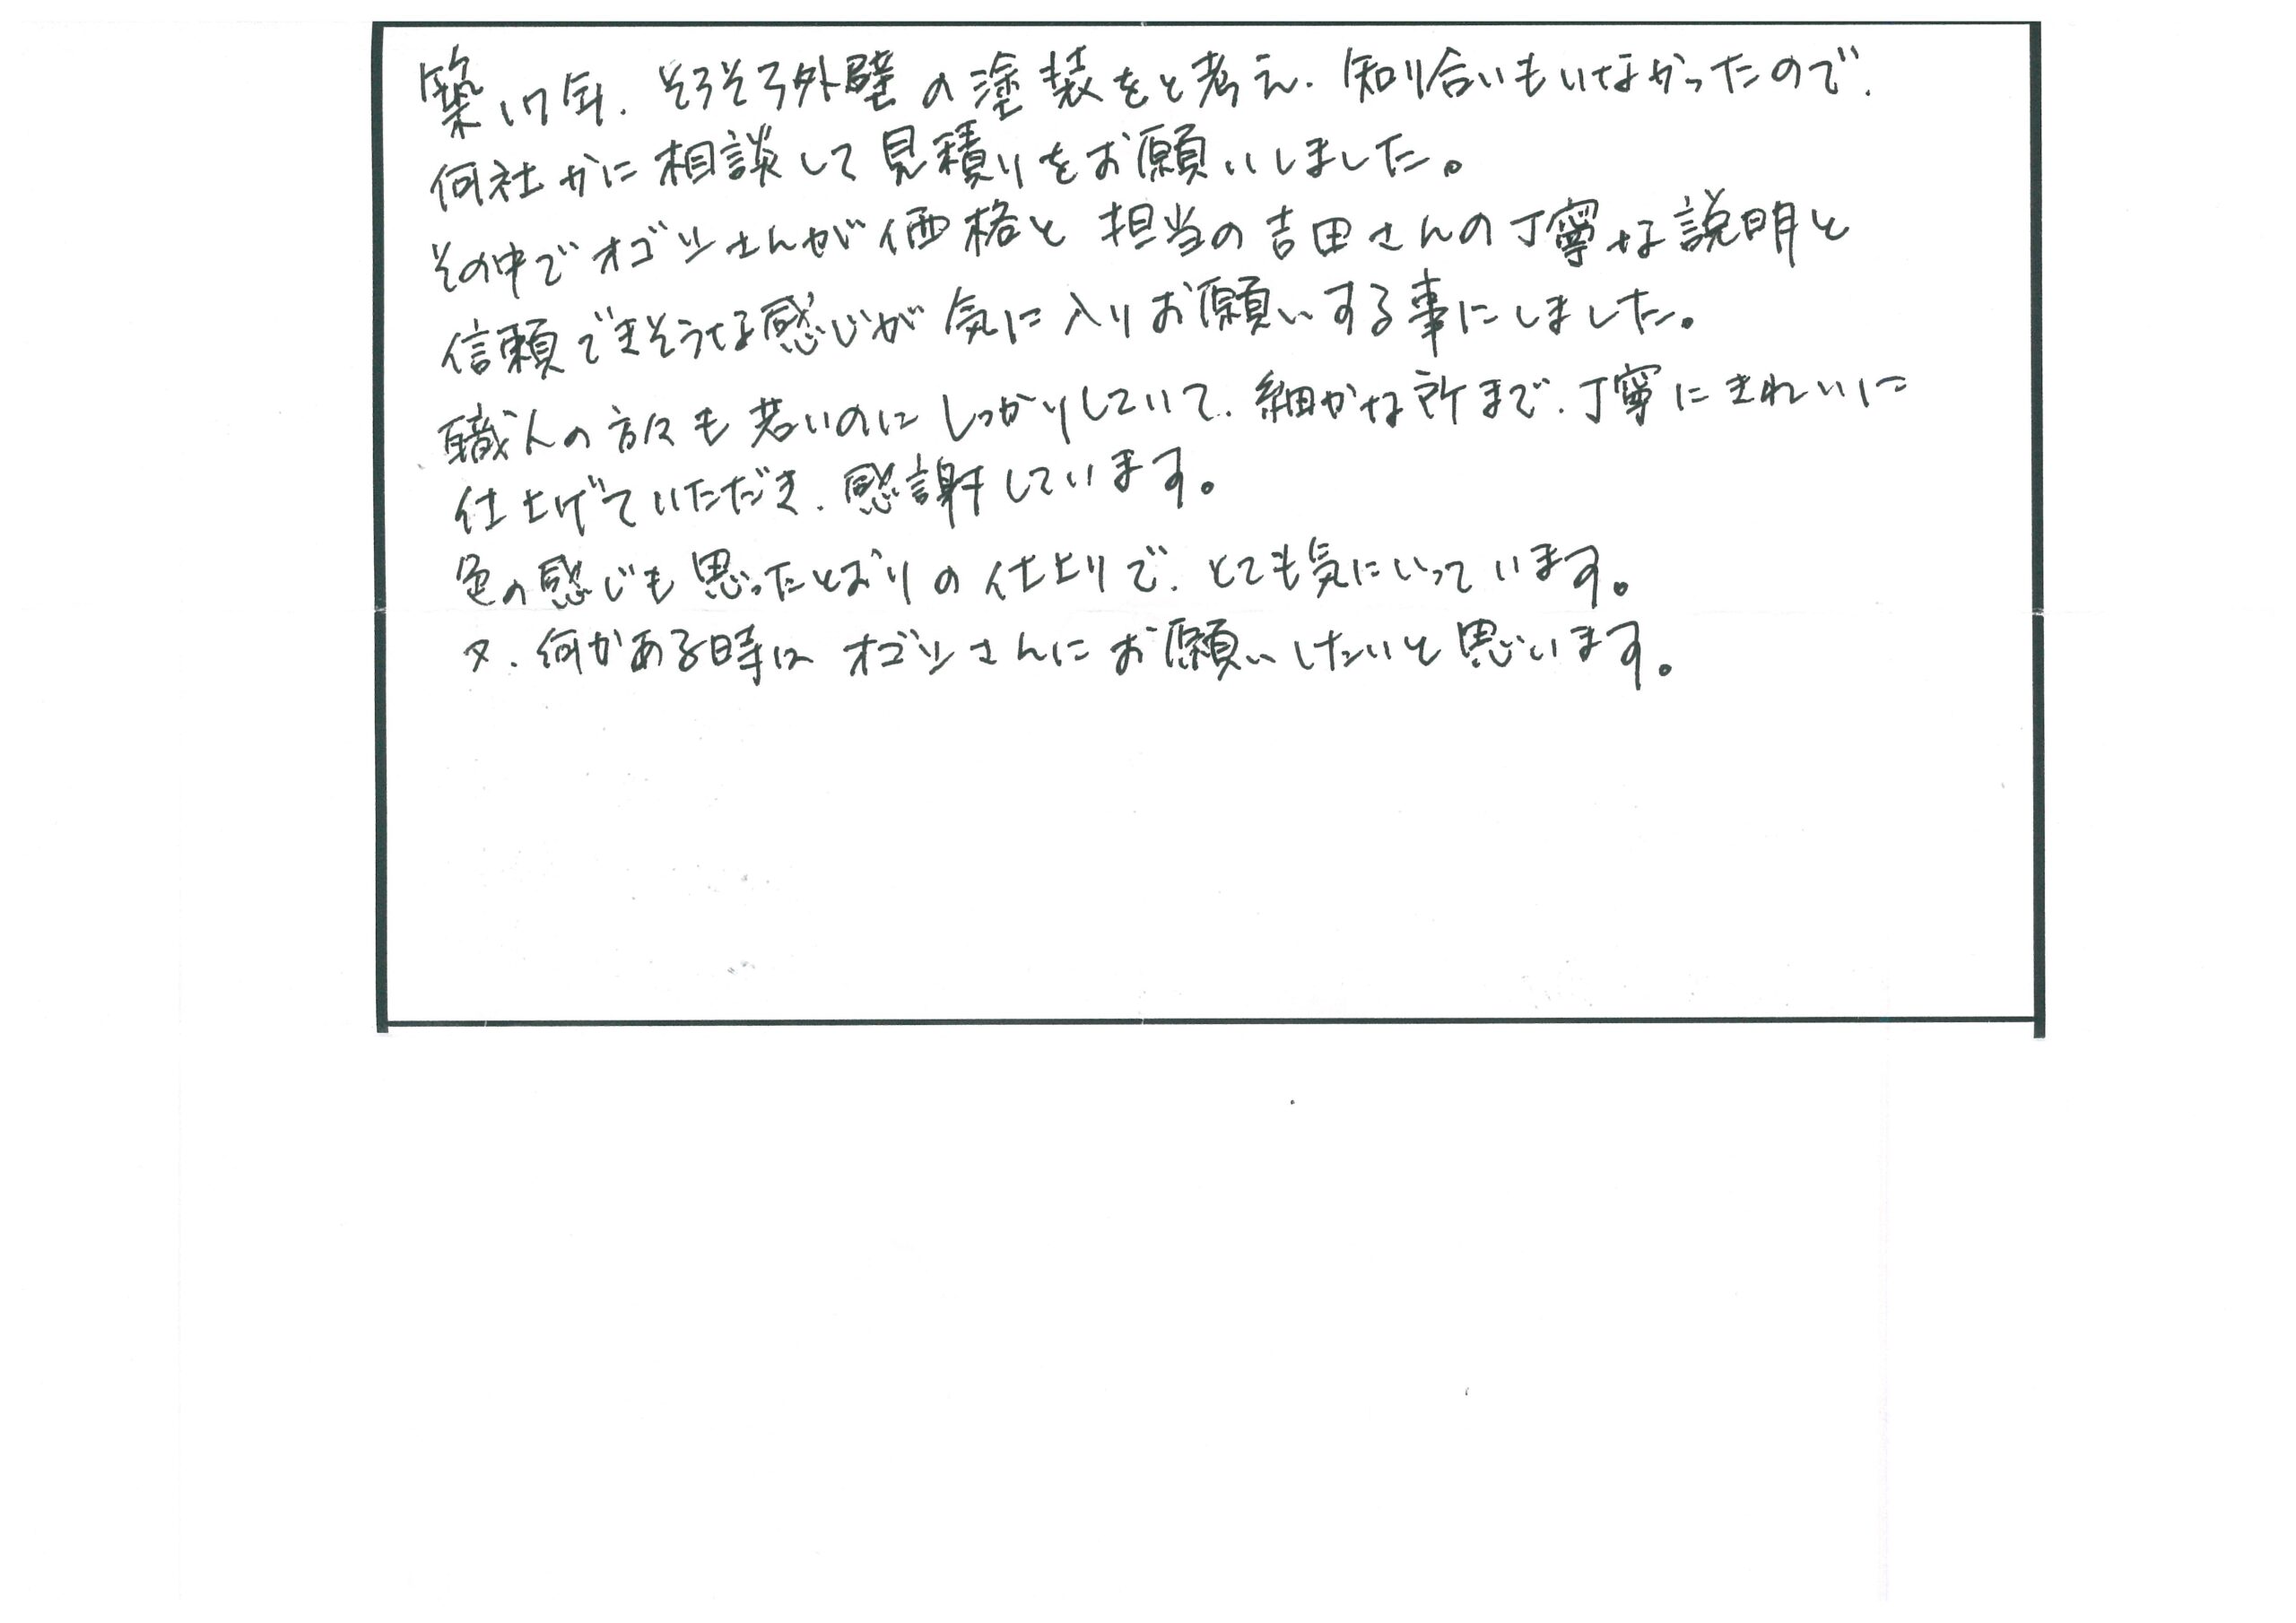 築17年、そろそろ外壁の塗装をと考え、知り合いもいなかったので、
何社かに相談して見積りをお願いしました。
その中でオゴシさんが価格と担当の吉田さんの丁寧な説明と
信頼できそうな感じが気に入りお願いする事にしました。
職人の方々も若いのにしっかりしていて、細かな所まで、丁寧にきれいに
仕上げていただき、感謝しています。
色の感じも思ったとおりの仕上りで、とても気にいっています。
又、何かある時はオゴシさんにお願いしたいと思います。